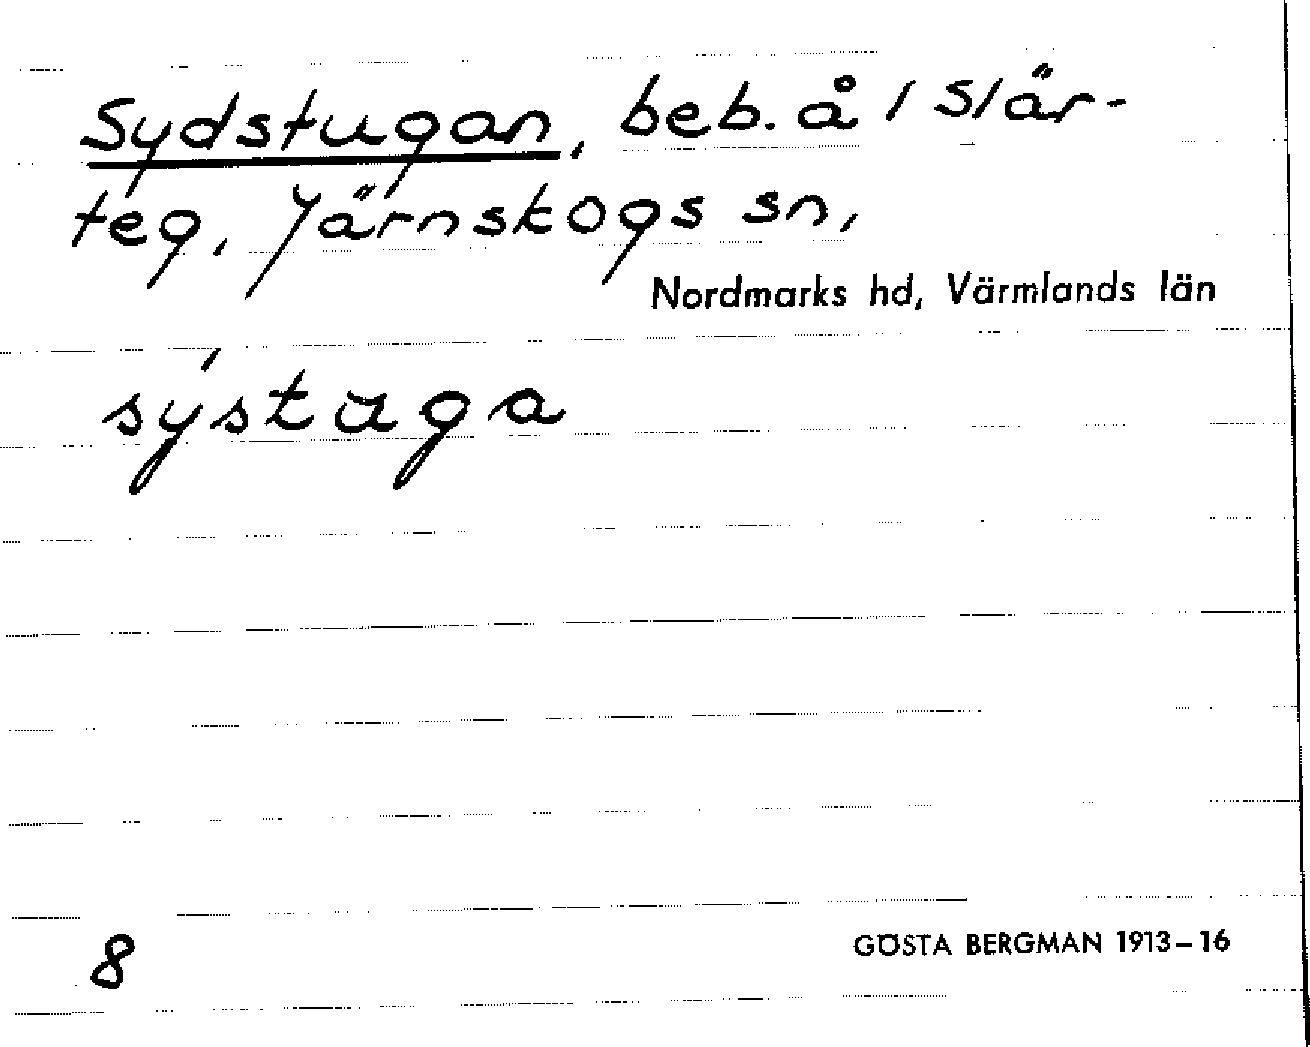 Sydstugan, beb. å 1 Slär-
teg, Järnskogs sn,
Nordmarks hd, Värmlands län
sýstuga
8
GÖSTA BERGMAN 1913–16